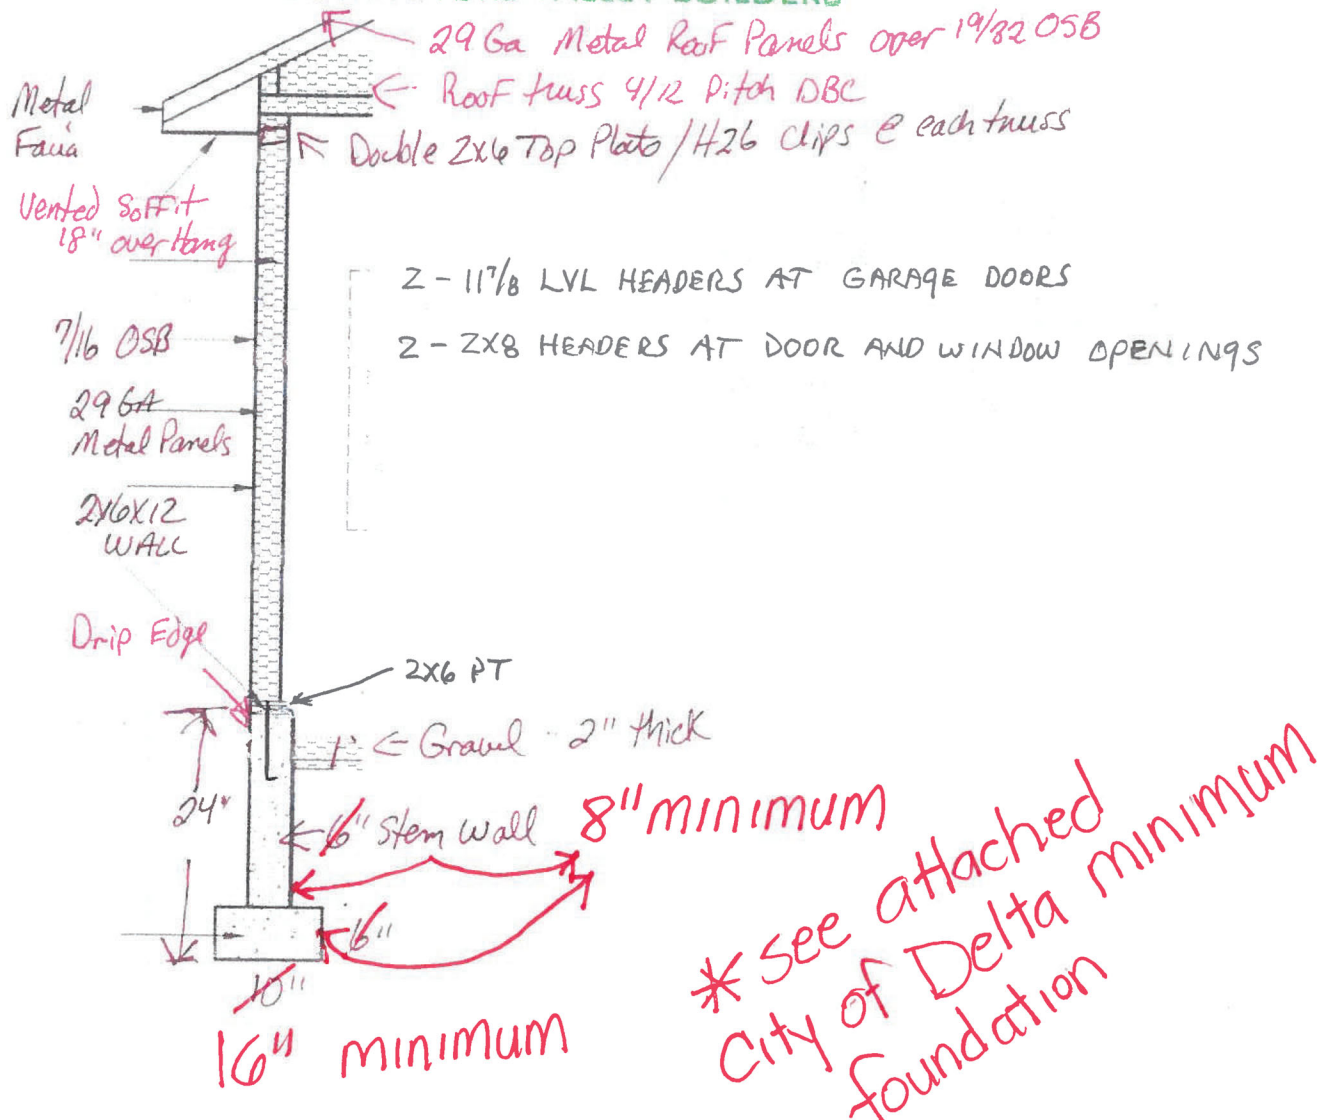 VALLEY BUILDERS
29 Ga Metal Roof Panels over 19/32 OSB
Roof truss 4/12 Pitch DBC
Double 2x6 Top Plate / H26 clips @ each truss
Metal
Facia
Vented Soffit
18" over Hang
2 - 11 7/8 LVL HEADERS AT GARAGE DOORS
2 - 2X8 HEADERS AT DOOR AND WINDOW OPENINGS
7/16 OSB
29 GA
Metal Panels
2X6X12
WALL
Drip Edge
2X6 PT
Gravel - 2" thick
24"
6" Stem Wall
8" MINIMUM
6"
10"
16" MINIMUM
* See attached
City of Delta minimum
foundation